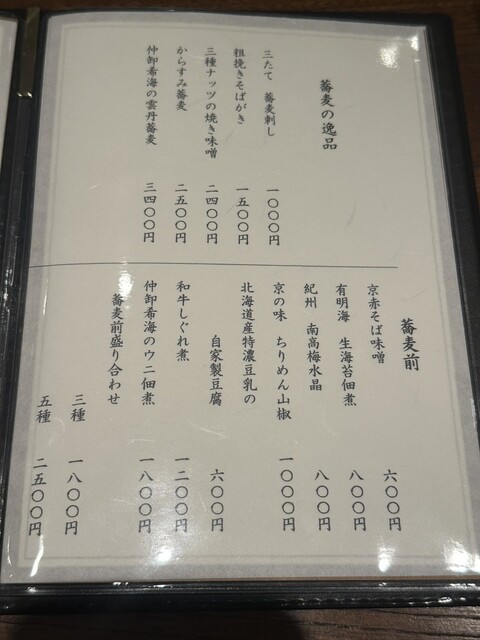 蕎麦の逸品
三たて 蕎麦刺し 一〇〇〇円
粗挽きそばがき 一五〇〇円
三種ナッツの焼き味噌 二四〇〇円
からすみ蕎麦 二五〇〇円
仲卸希海の雲丹蕎麦 三四〇〇円
蕎麦前
京赤そば味噌 六〇〇円
有明海 生海苔佃煮 八〇〇円
紀州 南高梅水晶 八〇〇円
京の味 ちりめん山椒 一〇〇〇円
北海道産特濃豆乳の
自家製豆腐 六〇〇円
和牛しぐれ煮 一二〇〇円
仲卸希海のウニ佃煮 一八〇〇円
蕎麦前盛り合わせ
三種 一八〇〇円
五種 二五〇〇円